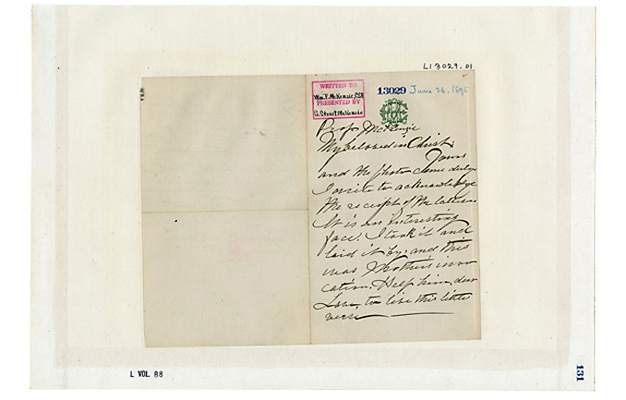 L13029.01
WRITTEN TO
Wm. P. McKenzie, CSB
PRESENTED BY
D. Stuart McKenzie
13029 June 26, 1895
Prof. McKenzie
My beloved in Christ:
Yours
and the photo came duly
I write to acknowledge
the receipt of the latter.
It is an interesting
face. I took it and
laid it by, and this
was Mother's invo
cation. Help him dear
Love, to live this little
verse
L VOL 88
131